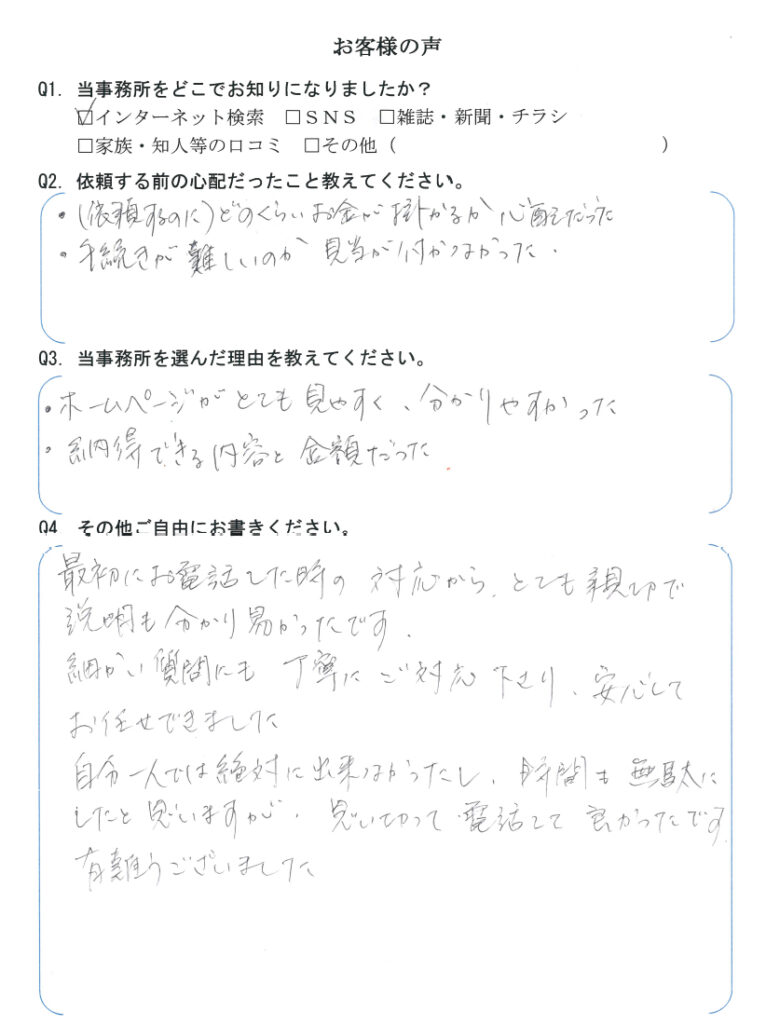 お客様の声
Q1. 当事務所をどこでお知りになりましたか？
☑インターネット検索 □ＳＮＳ □雑誌・新聞・チラシ
□家族・知人等の口コミ □その他（ ）
Q2. 依頼する前の心配だったこと教えてください。
・(依頼するのに)どのくらいお金が掛かるか心配だった
・手続きが難しいのか見当が付かなかった.
Q3. 当事務所を選んだ理由を教えてください。
・ホームページがとても見やすく、分かりやすかった
・納得できる内容と金額だった
Q4 その他ご自由にお書きください。
最初にお電話した時の対応から、とても親切で
説明も分かり易かったです.
細かい質問にも丁寧にご対応下さり、安心して
お任せできました
自分一人では絶対に出来なかったし、時間も無駄に
したと思いますが、思い切って電話して良かったです
有難うございました